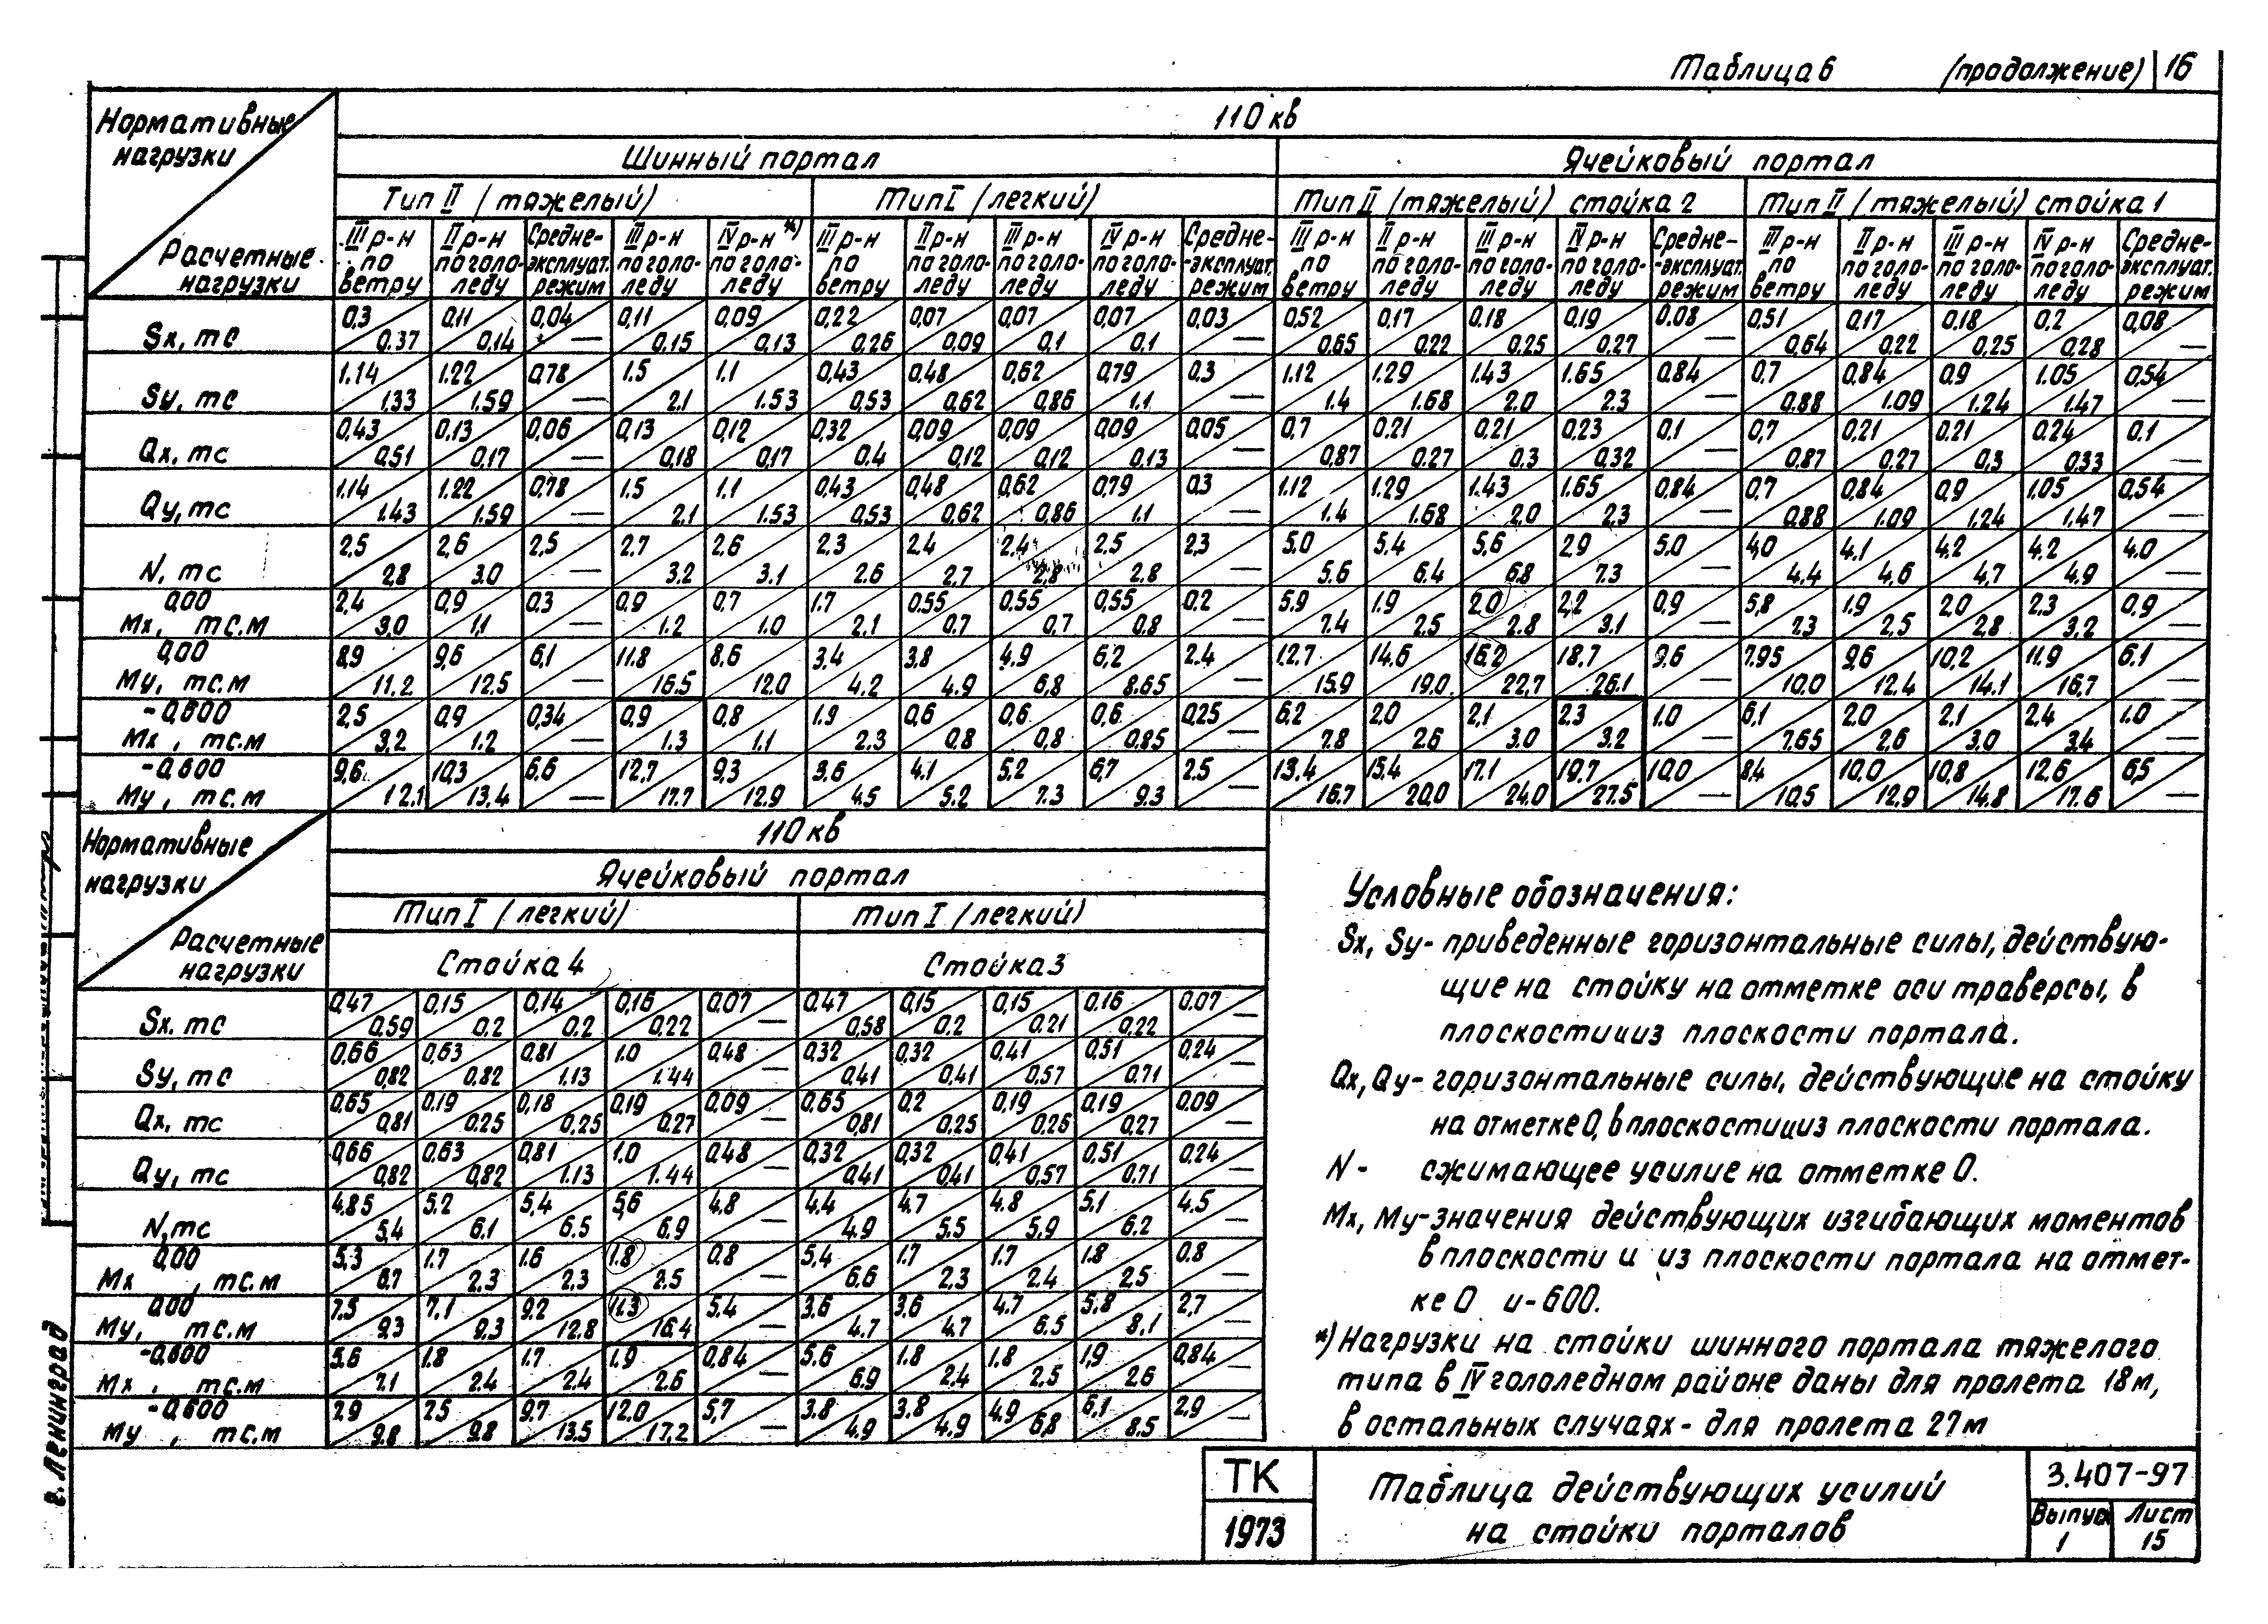 Таблица 6 (продолжение) 16
Нормативные нагрузки
Расчетные нагрузки
110 кв
Шинный портал Ячейковый портал
Тип II (тяжелый) Тип I (легкий) Тип II (тяжелый) стойка 2 Тип II (тяжелый) стойка 1
III р-н по ветру II р-н по гололеду Средне-эксплуат. режим III р-н по гололеду IV р-н по гололеду *) III р-н по ветру II р-н по гололеду III р-н по гололеду IV р-н по гололеду Средне-эксплуат. режим III р-н по ветру II р-н по гололеду III р-н по гололеду IV р-н по гололеду Средне-эксплуат. режим III р-н по ветру II р-н по гололеду III р-н по гололеду IV р-н по гололеду Средне-эксплуат. режим
Sx, тс 0,3 0,11 0,04 0,11 0,09 0,22 0,07 0,07 0,07 0,03 0,52 0.17 0.18 0.19 0.08 0,51 0.17 0.18 0.2 0,08
0.37 0,14 — 0,15 0,13 0,26 0,09 0,1 0,1 — 0,65 0.22 0.25 0.27 — 0,64 0.22 0.25 0.28 —
Sy, тс 1.14 1.22 0,78 1.5 1.1 0,43 0,48 0,62 0,79 0,3 1.12 1.29 1.43 1.65 0,84 0,7 0,84 0,9 1.05 0,54
1.33 1.59 — 2.1 1.53 0,53 0,62 0,86 1.1 — 1.4 1.68 2.0 2.3 — 0.88 1.09 1.24 1.47 —
Qx, тс 0,43 0,13 0,06 0,13 0,12 0,32 0,09 0,09 0,09 0,05 0,7 0.21 0.21 0.23 0,1 0,7 0,21 0.21 0.24 0.1
0,51 0,17 — 0,18 0,17 0.4 0,12 0,12 0,13 — 0,87 0.27 0.3 0,32 — 0.87 0,27 0,3 0.33 —
Qy, тс 1.14 1.22 0,78 1.5 1.1 0,43 0,48 0,62 0,79 0,3 1.12 1.29 1.43 1.65 0,84 0,7 0,84 0,9 1.05 0,54
1.43 1.59 — 2.1 1.53 0,53 0,62 0,86 1.1 — 1.4 1.68 2.0 2.3 — 0.88 1.09 1.24 1.47 —
N, тс 2,5 2,6 2,5 2.7 2.6 2.3 2.4 2.4 2.5 2,3 5.0 5.4 5.6 2.9 5.0 4,0 4.1 4.2 4.2 4.0
2.8 3.0 — 3.2 3.1 2.6 2.7 2,8 2.8 — 5.6 6.4 6.8 7.3 — 4.4 4.6 4.7 4.9 —
0,00 Mx, тс.м 2,4 0,9 0.3 0.9 0,7 1.7 0.55 0.55 0,55 0.2 5.9 1.9 2.0 2,2 0,9 5,8 1.9 2.0 2.3 0,9
3,0 1.1 — 1.2 1.0 2.1 0.7 0,7 0,8 — 7.4 2.5 2.8 3.1 — 7.3 2,5 2.8 3.2 —
0,00 My, тс.м 8,9 9,6 6,1 11.8 8,6 3,4 3,8 4.9 6,2 2.4 12.7 14.6 16.2 18.7 9.6 7.95 9,6 10.2 11.9 6.1
11.2 12.5 — 16.5 12.0 4.2 4.9 6,8 8.65 — 15.9 19.0 22,7 26.1 — 10.0 12.4 14.1 16.7 —
-0,600 Mx, тс.м 2,5 0,9 0,34 0,9 0,8 1.9 0,6 0,6 0,6 0,25 6.2 2.0 2,1 2.3 1.0 6,1 2.0 2.1 2.4 1.0
3,2 1.2 — 1.3 1.1 2.3 0.8 0,8 0.85 — 7.8 2.6 3.0 3.2 — 7.65 2,6 3.0 3.4 —
-0,600 My, тс.м 9,6 10,3 6.6 12,7 9.3 3,6 4.1 5.2 6,7 2.5 13.4 15.4 17.1 19.7 10,0 8,4 10.0 10.8 12.6 6,5
12.1 13.4 — 17.7 12.9 4.5 5.2 7.3 9.3 — 16.7 20.0 24.0 27.5 — 10,5 12.9 14.8 17.6 —
Нормативные нагрузки
Расчетные нагрузки
110 кв
Ячейковый портал
Тип I (легкий) Тип I (легкий)
Стойка 4 Стойка 3
Sx, тс 0,47 0,15 0,14 0,16 0.07 0,47 0,15 0,15 0.16 0.07
0,59 0.2 0.2 0,22 — 0,58 0.2 0.21 0.22 —
Sy, тс 0.66 0,63 0,81 1.0 0,48 0,32 0,32 0,41 0,51 0,24
0,82 0.82 1.13 1.44 — 0,41 0,41 0,57 0.71 —
Qx, тс 0,65 0.19 0,18 0,19 0,09 0,65 0.2 0,19 0.19 0.09
0,81 0.25 0,25 0.27 — 0,81 0.25 0.26 0.27 —
Qy, тс 0,66 0.63 0,81 1.0 0,48 0,32 0,32 0,41 0,51 0.24
0,82 0,82 1.13 1.44 — 0,41 0,41 0,57 0.71 —
N, тс 4.85 5.2 5,4 5,6 4.8 4.4 4.7 4.8 5.1 4.5
5,4 6.1 6.5 6.9 — 4.9 5.5 5.9 6.2 —
0,00 Mx, тс.м 5,3 1.7 1.6 1.8 0.8 5,4 1.7 1.7 1.8 0.8
6.7 2.3 2.3 2.5 — 6.6 2.3 2.4 2.5 —
0,00 My, тс.м 7.5 7.1 9.2 11.3 5.4 3.6 3.6 4.7 5.8 2,7
9.3 9.3 12.8 16.4 — 4.7 4.7 6.5 8.1 —
-0,600 Mx, тс.м 5.6 1.8 1.7 1.9 0,84 5.6 1.8 1.8 1,9 0,84
7.1 2.4 2.4 2.6 — 6.9 2.4 2,5 2.6 —
-0,600 My, тс.м 7.9 7.5 9.7 12.0 5,7 3.8 3.8 4.9 6.1 2,9
9.8 9.8 13.5 17,2 — 4.9 4.9 6,8 8.5 —
Условные обозначения:
Sx, Sy- приведенные горизонтальные силы, действую-
щие на стойку на отметке оси траверсы, в
плоскости и из плоскости портала.
Qx, Qy- горизонтальные силы, действующие на стойку
на отметке 0, в плоскости и из плоскости портала.
N - сжимающее усилие на отметке 0.
Mx, My- значения действующих изгибающих моментов
в плоскости и из плоскости портала на отмет-
ке 0 и -600.
*) Нагрузки на стойки шинного портала тяжелого
типа в IV гололедном районе даны для пролета 18м,
в остальных случаях - для пролета 27м
г. Ленинград
ТК
1973
Таблица действующих усилий
на стойки порталов
3.407-97
Выпуск 1
Лист 15